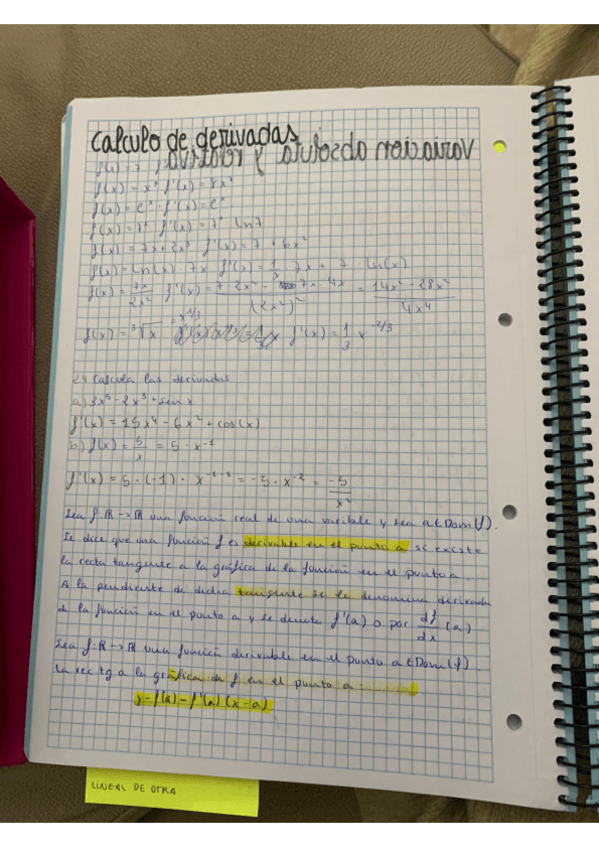 Calculo de derivadas
Variacion absoluta y relativa
f(x) = 7
f(x) = x⁸ f'(x) = 8x⁷
f(x) = eˣ · f'(x) = eˣ
f(x) = 7ˣ f'(x) = 7ˣ · ln7
f(x) = 7x + 2x³ f'(x) = 7 + 6x²
f(x) = ln(x) · 7x f'(x) = 1/x · 7x + 7 · ln(x)
f(x) = 7x/2x² f'(x) = 7 · 2x² - 7x · 4x/(2x²)² = 14x² - 28x²/4x⁴
f(x) = ³√x = x^1/3 f'(x) = 1/3 x^-2/3
24 Calcula las derivadas
a) 3x⁵ - 2x³ + sen x
f'(x) = 15x⁴ - 6x² + cos(x)
b) f(x) = 5/x = 5 · x⁻¹
f'(x) = 5 · (-1) · x⁻¹⁻¹ = -5 · x⁻² = -5/x²
Sea f: ℝ → ℝ una función real de una varible y sea a ∈ Dom(f).
Se dice que una función f es derivable en el punto a si existe
la recta tangente a la gráfica de la función en el punto a.
A la pendiente de dicha tangente se le denomina derivada
de la función en el punto a y se denota f'(a) o por df/dx (a)
Sea f: ℝ → ℝ una función derivable en el punto a ∈ Dom(f).
La rec tg a la gráfica de f en el punto a:
y - f(a) = f'(a) (x - a)
LINEAL DE OTRA